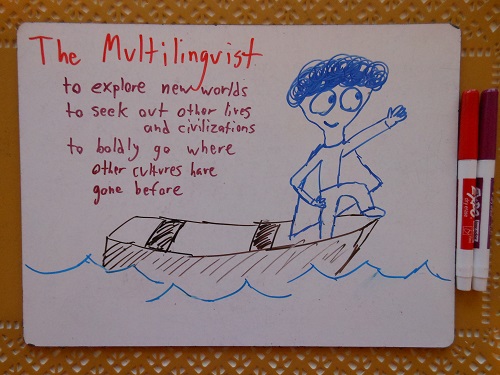 The Multilinguist
to explore new worlds
to seek out other lives
and civilizations
to boldly go where
other cultures have
gone before
EXPO